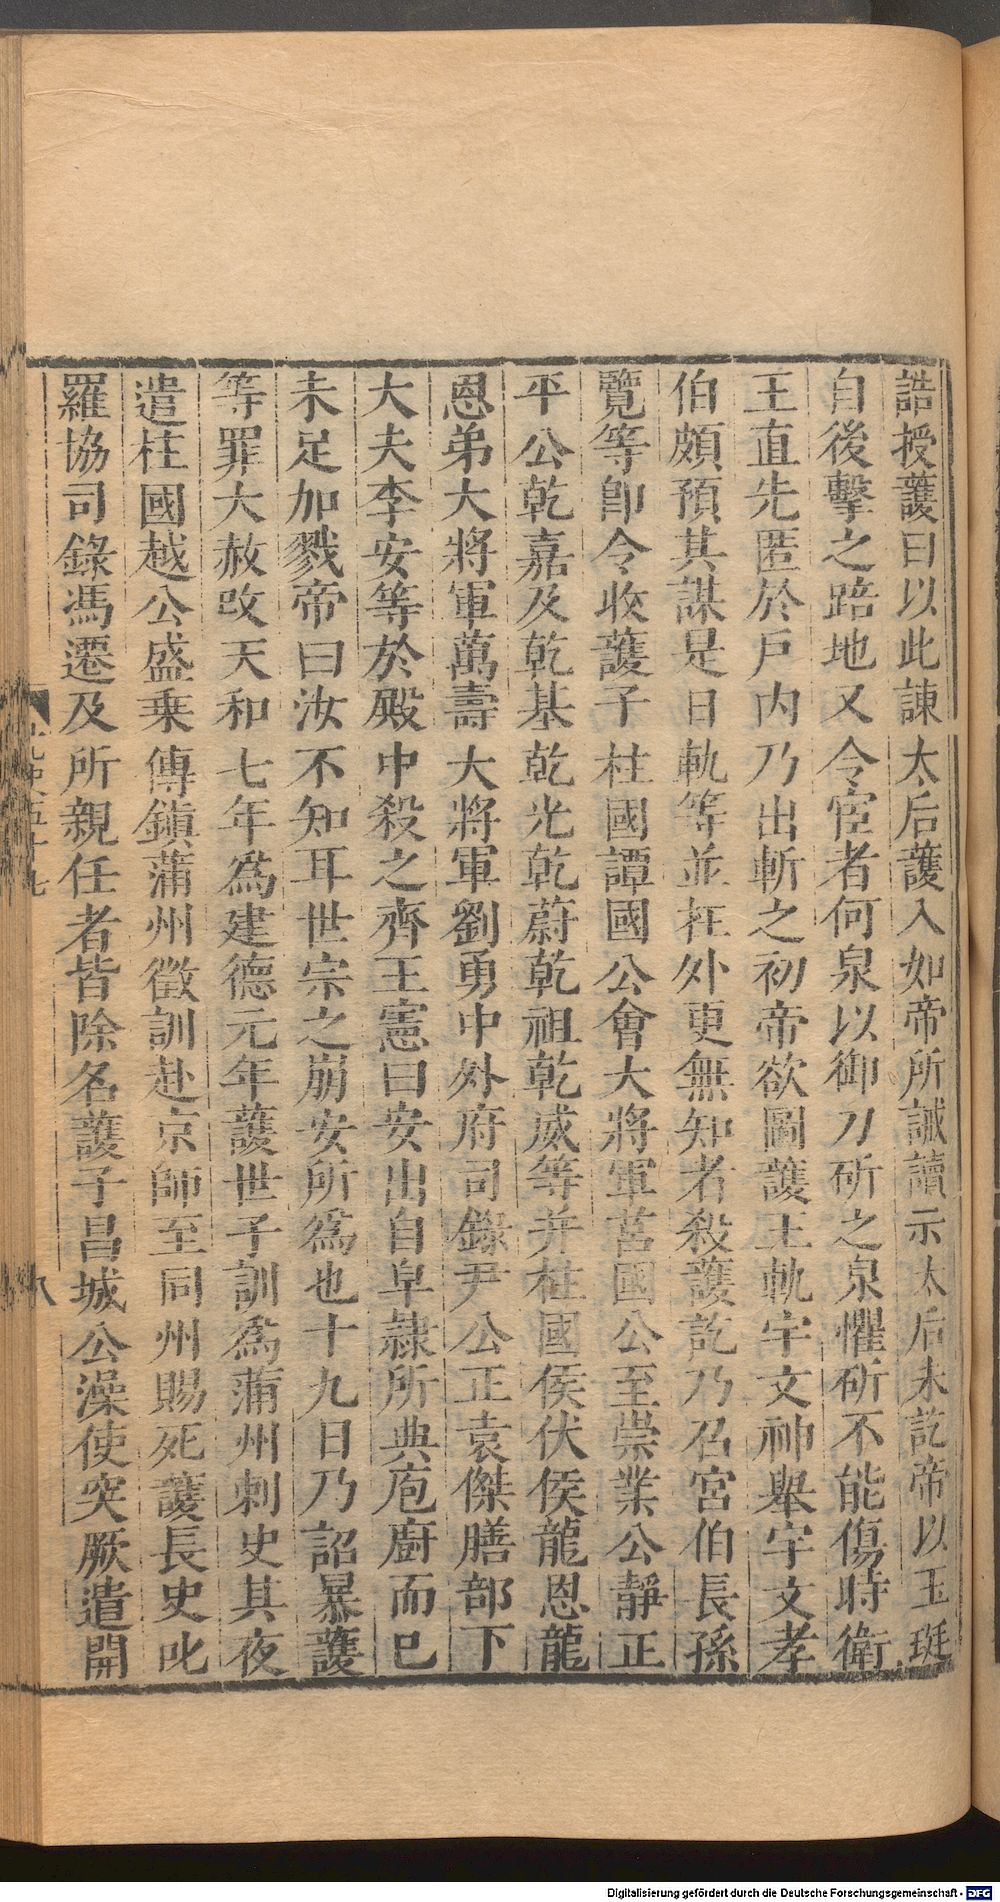 誥授護曰以此諫太后護入如帝所誡讀示太后未訖帝以玉珽
自後擊之踣地又令宦者何泉以御刀斫之泉懼斫不能傷時衛
王直先匿於戶內乃出斬之初帝欲圖護王軌宇文神舉宇文孝
伯頗預其謀是日軌等並在外更無知者殺護訖乃召宮伯長孫
覽等卽令收護子柱國譚國公會大將軍莒國公至崇業公靜正
平公乾嘉及乾基乾光乾蔚乾祖乾威等并柱國侯伏侯龍恩龍
恩弟大將軍萬壽大將軍劉勇中外府司錄尹公正袁傑膳部下
大夫李安等於殿中殺之齊王憲曰安出自皁隸所典庖廚而已
未足加戮帝曰汝不知耳世宗之崩安所爲也十九日乃詔暴護
等罪大赦改天和七年爲建德元年護世子訓爲蒲州刺史其夜
遣柱國越公盛乗傳鎭蒲州徵訓赴京師至同州賜死護長史叱
羅協司錄馮遷及所親任者皆除名護子昌城公深使突厥遣開
八
Digitalisierung gefördert durch die Deutsche Forschungsgemeinschaft - DFG